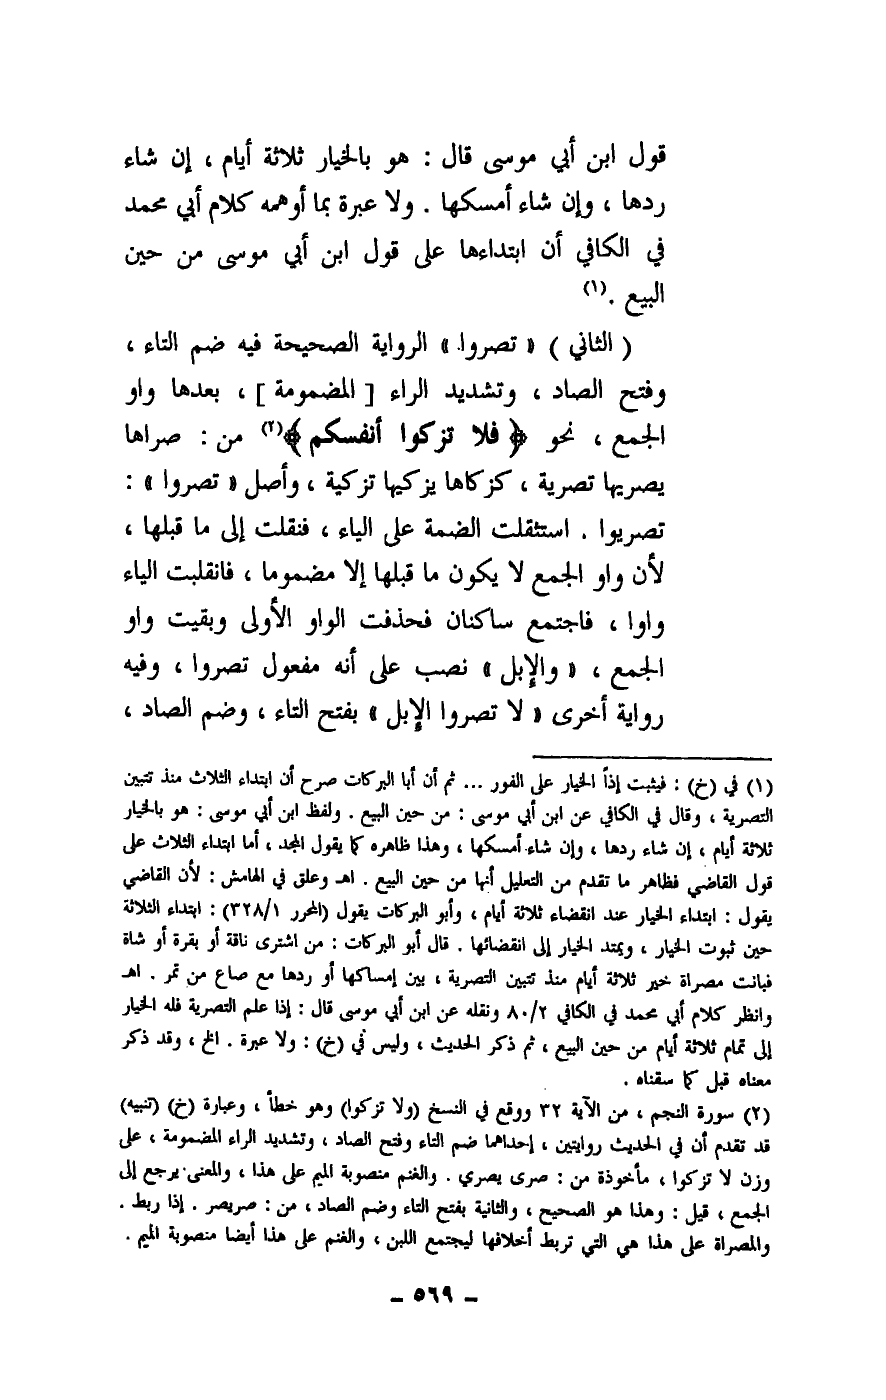 قول ابن أبي موسى قال : هو بالخيار ثلاثة أيام ، إن شاء
ردها ، وإن شاء أمسكها . ولا عبرة بما أوهمه كلام أبي محمد
في الكافي أن ابتداءها على قول ابن أبي موسى من حين
البيع .(١)
( الثاني ) « تصروا » الرواية الصحيحة فيه ضم التاء ،
وفتح الصاد ، وتشديد الراء [ المضمومة ] ، بعدها واو
الجمع ، نحو ﴿ فلا تزكوا أنفسكم ﴾(٢) من : صراها
يصريها تصرية ، كزكاها يزكيها تزكية ، وأصل « تصروا » :
تصريوا . استثقلت الضمة على الياء ، فنقلت إلى ما قبلها ،
لأن واو الجمع لا يكون ما قبلها إلا مضموما ، فانقلبت الياء
واوا ، فاجتمع ساكنان فحذفت الواو الأولى وبقيت واو
الجمع ، « والإبل » نصب على أنه مفعول تصروا ، وفيه
رواية أخرى « لا تصروا الإبل » بفتح التاء ، وضم الصاد ،
(١) في (خ) : فيثبت إذاً الخيار على الفور ... ثم أن أبا البركات صرح أن ابتداء الثلاث منذ تتبين
التصرية ، وقال في الكافي عن ابن أبي موسى : من حين البيع . ولفظ ابن أبي موسى : هو بالخيار
ثلاثة أيام ، إن شاء ردها ، وإن شاء أمسكها ، وهذا ظاهره كما يقول المجد ، أما ابتداء الثلاث على
قول القاضي فظاهر ما تقدم من التعليل أنها من حين البيع . اهـ وعلق في الهامش : لأن القاضي
يقول : ابتداء الخيار عند انقضاء ثلاثة أيام ، وأبو البركات يقول (المحرر ٣٢٨/١) : ابتداء الثلاثة
حين ثبوت الخيار ، ويمتد الخيار إلى انقضائها . قال أبو البركات : من اشترى ناقة أو بقرة أو شاة
فبانت مصراة خير ثلاثة أيام منذ تتبين التصرية ، بين إمساكها أو ردها مع صاع من تمر . اهـ
وانظر كلام أبي محمد في الكافي ٨٠/٢ ونقله عن ابن أبي موسى قال : إذا علم التصرية فله الخيار
إلى تمام ثلاثة أيام من حين البيع ، ثم ذكر الحديث ، وليس في (خ) : ولا عبرة . الخ ، وقد ذكر
معناه قبل كما سقناه .
(٢) سورة النجم ، من الآية ٣٢ ووقع في النسخ (ولا تزكوا) وهو خطأ ، وعبارة (خ) (تنبيه)
قد تقدم أن في الحديث روايتين ، إحداهما ضم التاء وفتح الصاد ، وتشديد الراء المضمومة ، على
وزن لا تزكوا ، مأخوذة من : صرى يصري . والغنم منصوبة الميم على هذا ، والمعنى يرجع إلى
الجمع ، قيل : وهذا هو الصحيح ، والثانية بفتح التاء وضم الصاد ، من : صريصر . إذا ربط .
والمصراة على هذا هي التي تربط أخلافها ليجتمع اللبن ، والغنم على هذا أيضا منصوبة الميم .
ـ ٥٦٩ ـ